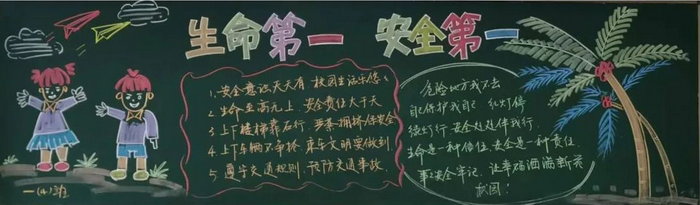 生命第一 安全第一
1.安全意识天天有 校园生活乐悠悠
2.生命至高无上 安全责任大于天
3.上下楼梯靠右行 严禁拥挤保安全
4.上下车辆不争抢 乘车文明要做到
5.遵守交通规则 预防交通事故
危险地方我不去
自我保护我自己 红灯停
绿灯行 安全处处伴我行
生命是一种信任,安全是一种责任
事事安全牢记,让幸福洒满新英
校园!
一(4)班